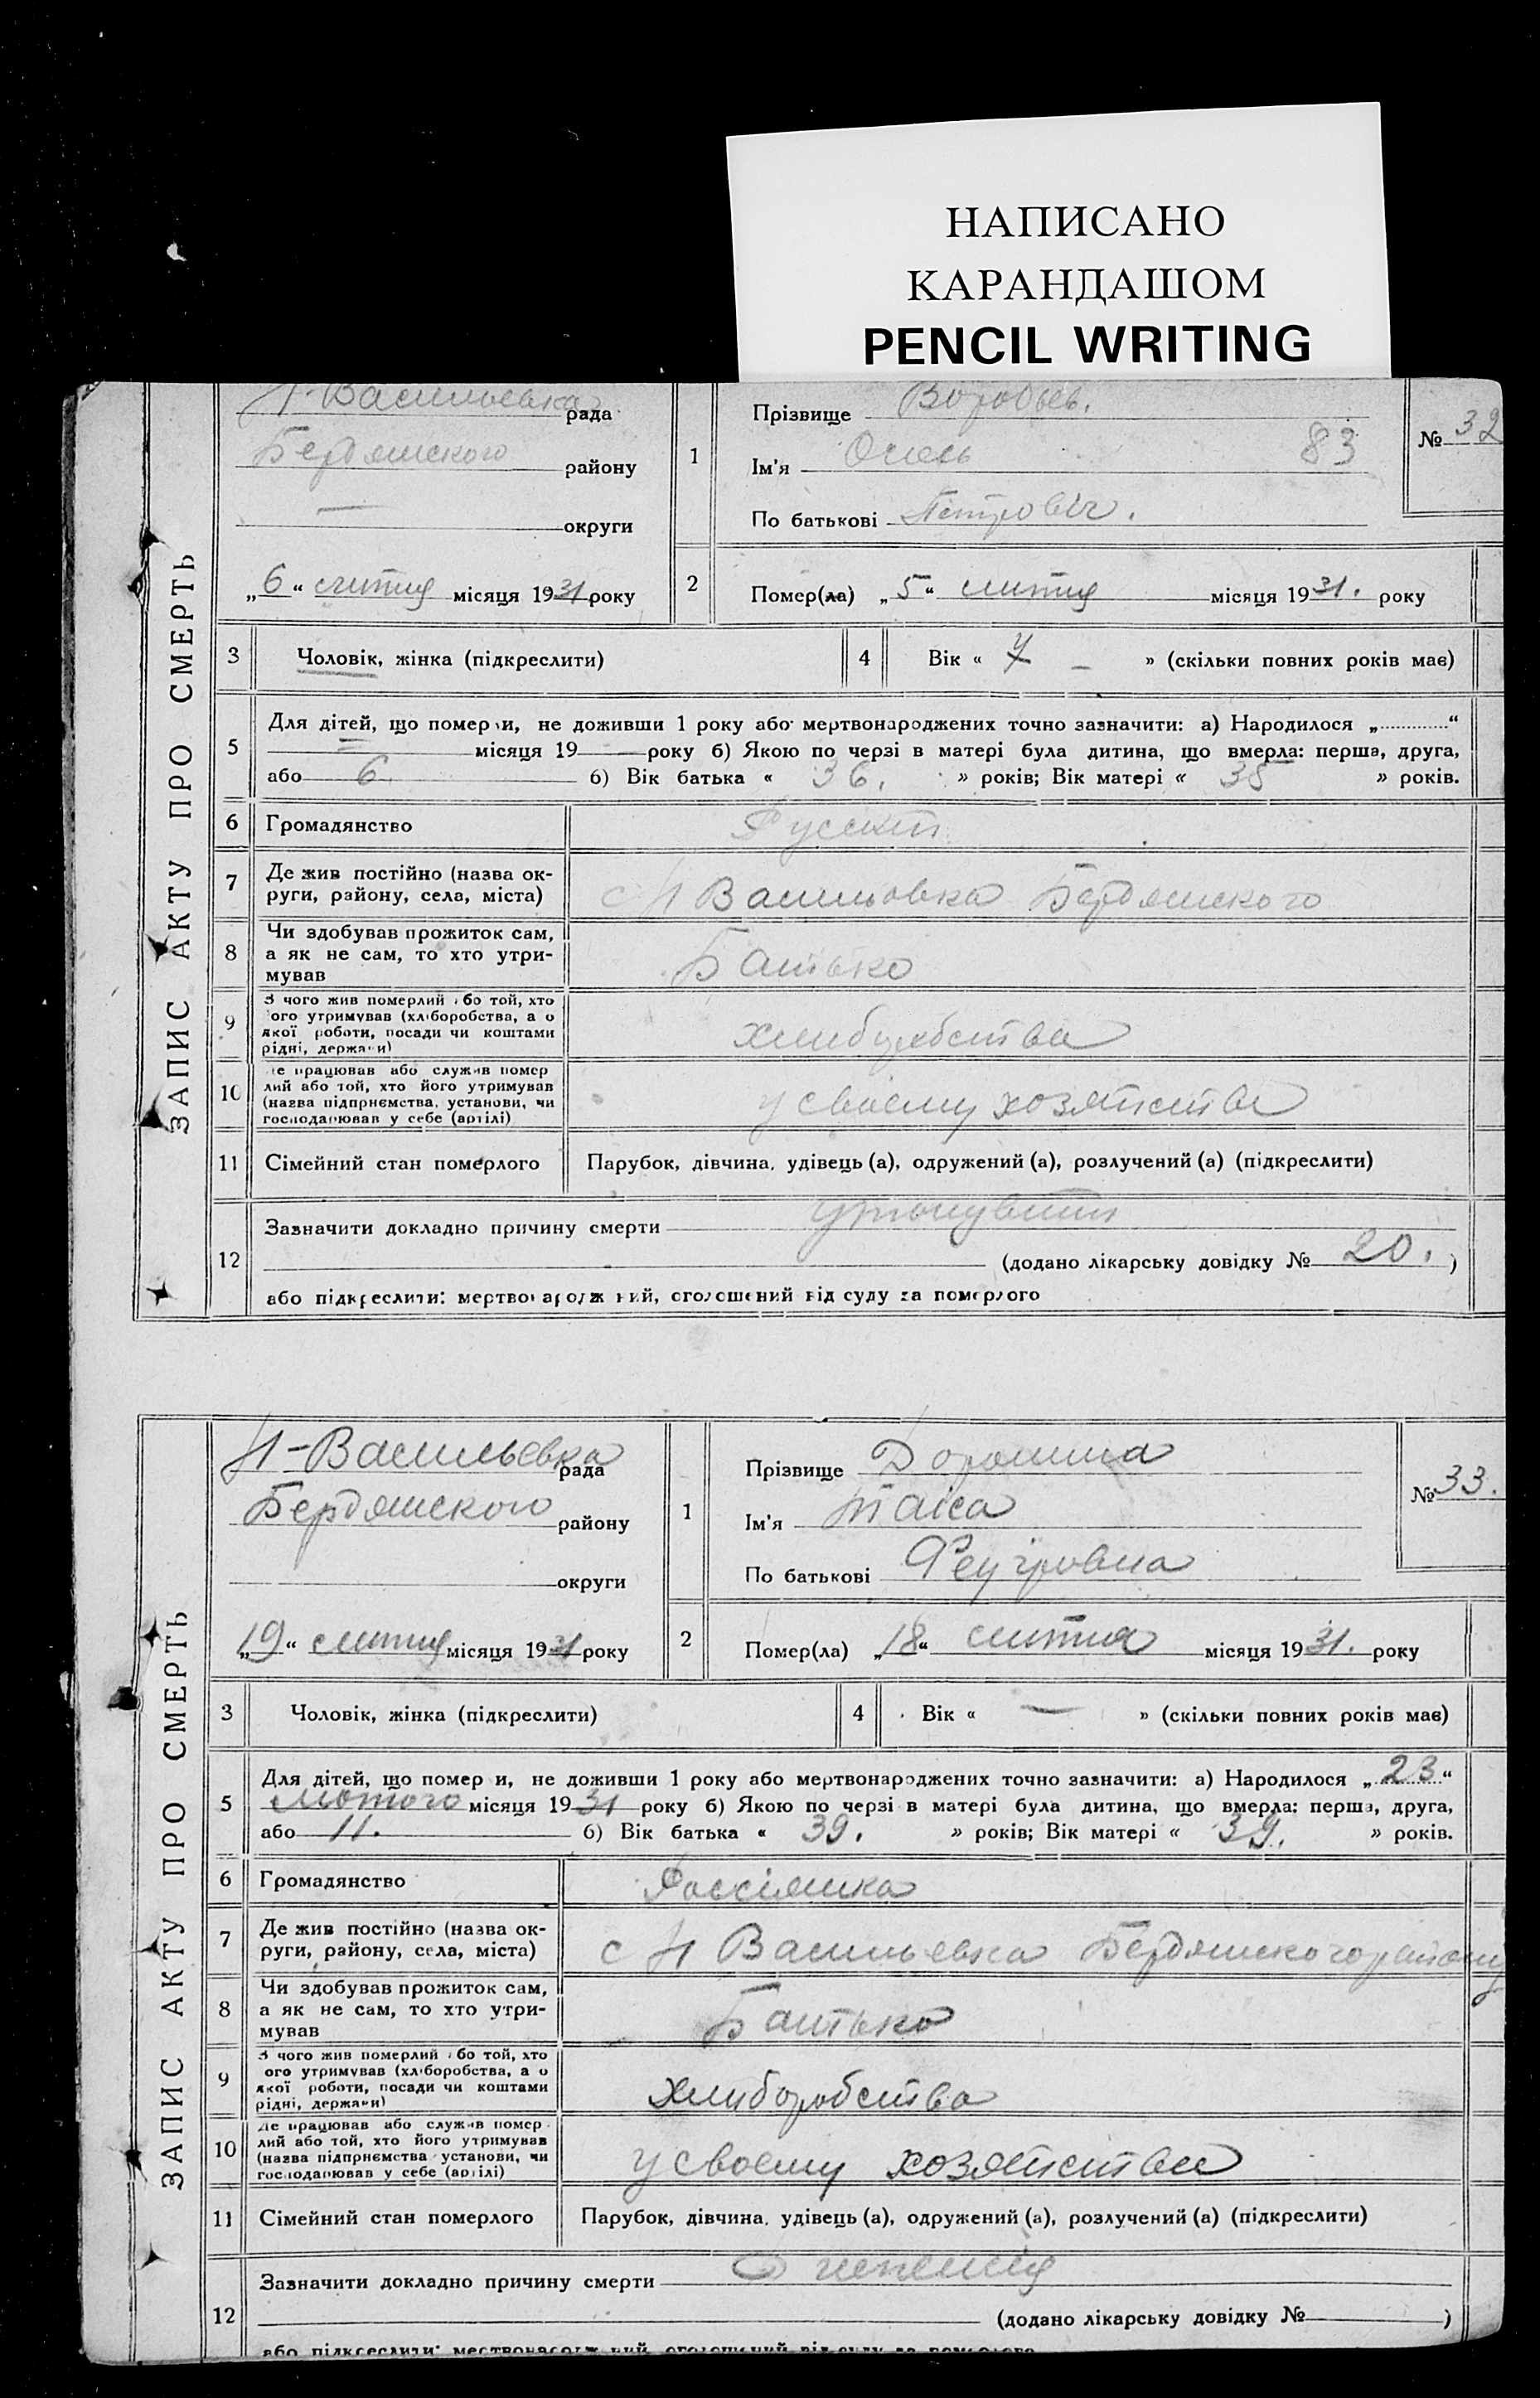 НАПИСАНО
КАРАНДАШОМ
PENCIL WRITING
ЗАПИС АКТУ ПРО СМЕРТЬ
Н-Васильевка рада
Бердянского району
— округи
„6“ липня місяця 1931 року
1 Прізвище Воробьев.
Ім'я 83
По батькові Петрович.
№ 32
2 Помер(ла) „5“ липня місяця 1931. року
3 Чоловік, жінка (підкреслити)
4 Вік « » (скільки повних років має)
5 Для дітей, що померли, не доживши 1 року або мертвонароджених точно зазначити: а) Народилося „ “
місяця 19 року б) Якою по черзі в матері була дитина, що вмерла: перша, друга,
або 6. б) Вік батька « 36. » років; Вік матері « 35 » років.
6 Громадянство
7 Де жив постійно (назва ок-
руги, району, села, міста) с Н Васильовка Бердянского
8 Чи здобував прожиток сам,
а як не сам, то хто утри-
мував Батько
9 З чого жив померлий або той, хто
його утримував (хліборобства, а о
якої роботи, посади чи коштами
рідні, держави)
10 Де працював або служив помер
лий або той, хто його утримував
(назва підприємства, установи, чи
господарював у себе (артілі) у своему хозяйстви
11 Сімейний стан померлого Парубок, дівчина, удівець (а), одружений (а), розлучений (а) (підкреслити)
12 Зазначити докладно причину смерти
(додано лікарську довідку № 20. )
або підкреслити: мертвонароджений, оголошений від суду за померлого
ЗАПИС АКТУ ПРО СМЕРТЬ
Н-Васильевка рада
Бердянского району
округи
„19“ липня місяця 1931 року
1 Прізвище
Ім'я Таіса
По батькові
№ 33.
2 Помер(ла) „18“ липня місяця 1931. року
3 Чоловік, жінка (підкреслити)
4 Вік « — » (скільки повних років має)
5 Для дітей, що померли, не доживши 1 року або мертвонароджених точно зазначити: а) Народилося „23“
Лютого місяця 1931 року б) Якою по черзі в матері була дитина, що вмерла: перша, друга,
або 11. б) Вік батька « 39. » років; Вік матері « 39. » років.
6 Громадянство Россіянка
7 Де жив постійно (назва ок-
руги, району, села, міста) с Н Васильевка Бердянского району
8 Чи здобував прожиток сам,
а як не сам, то хто утри-
мував Батько
9 З чого жив померлий або той, хто
його утримував (хліборобства, а о
якої роботи, посади чи коштами
рідні, держави) Хлиборобства
10 Де працював або служив помер
лий або той, хто його утримував
(назва підприємства установи, чи
господарював у себе (артілі) у своему хозяйстви
11 Сімейний стан померлого Парубок, дівчина, удівець (а), одружений (а), розлучений (а) (підкреслити)
12 Зазначити докладно причину смерти
(додано лікарську довідку № )
або підкреслити: мертвонароджений, оголошений від суду за померлого